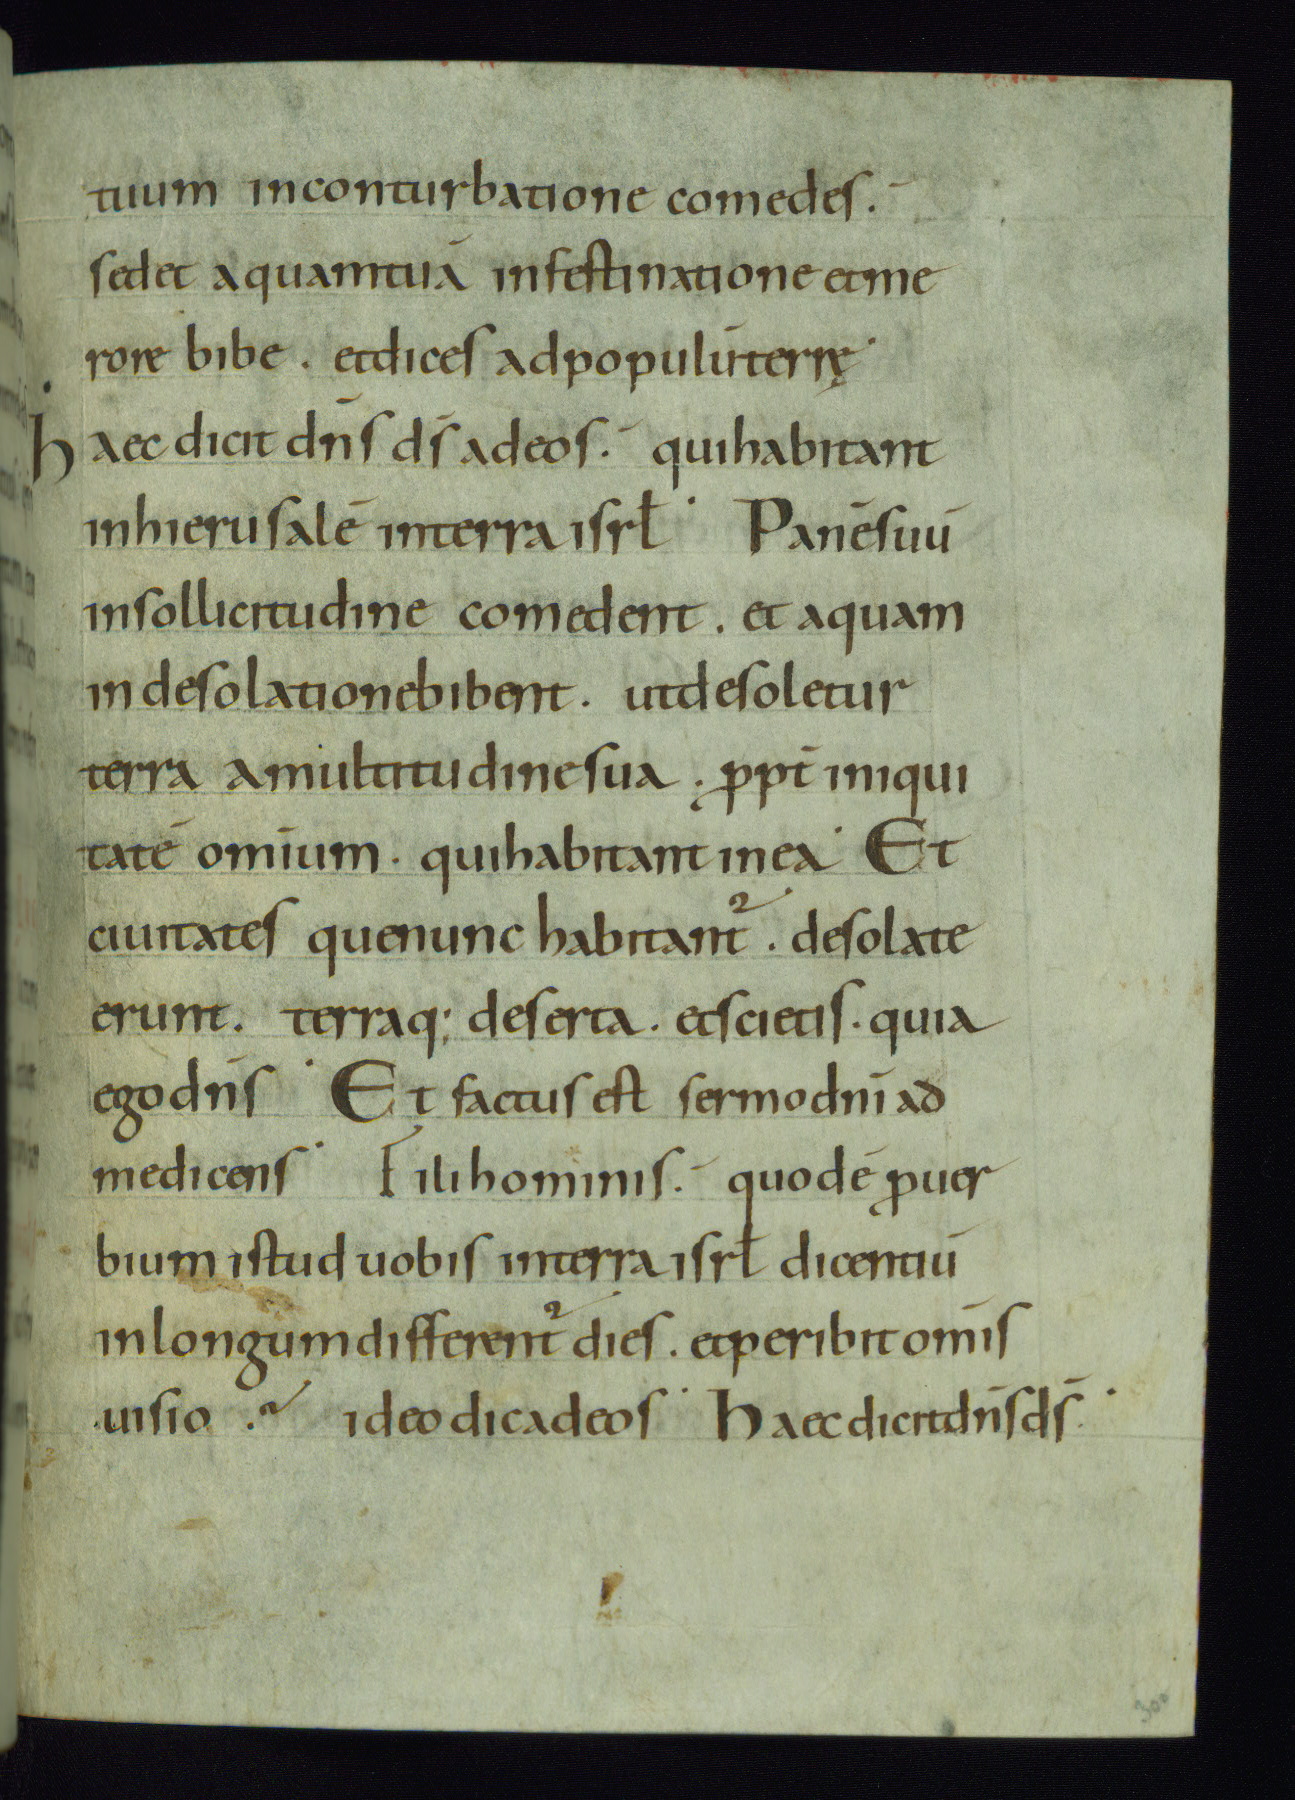 tuum inconturbatione comedes.
sedet aquamtuā infestinatione etme
rore bibe. etdices adpopulūterrę·
haec dicit dn̄s ds̄ adeos. quihabitant
inhierusalē interra isrl̄· Panēsuū
insollicitudine comedent. et aquam
indesolationebibent. utdesoletur
terra amultitudinesua. ꝓpt̄ iniqui
tatē om̄ium. quihabitant inea· Et
ciuitates quenunc habitant᷑. desolate
erunt. terraq; deserta. etscietis. quia
egodn̄s· Et factus est sermodn̄i ad
medicens· Filihominis. quodē ꝓuer
bium istud uobis interra isrl̄ dicentiū
inlongumdifferent᷑ dies. etperibit om̄is
uisio.~ ideodicadeos· Haecdicitdn̄sds̄·
300